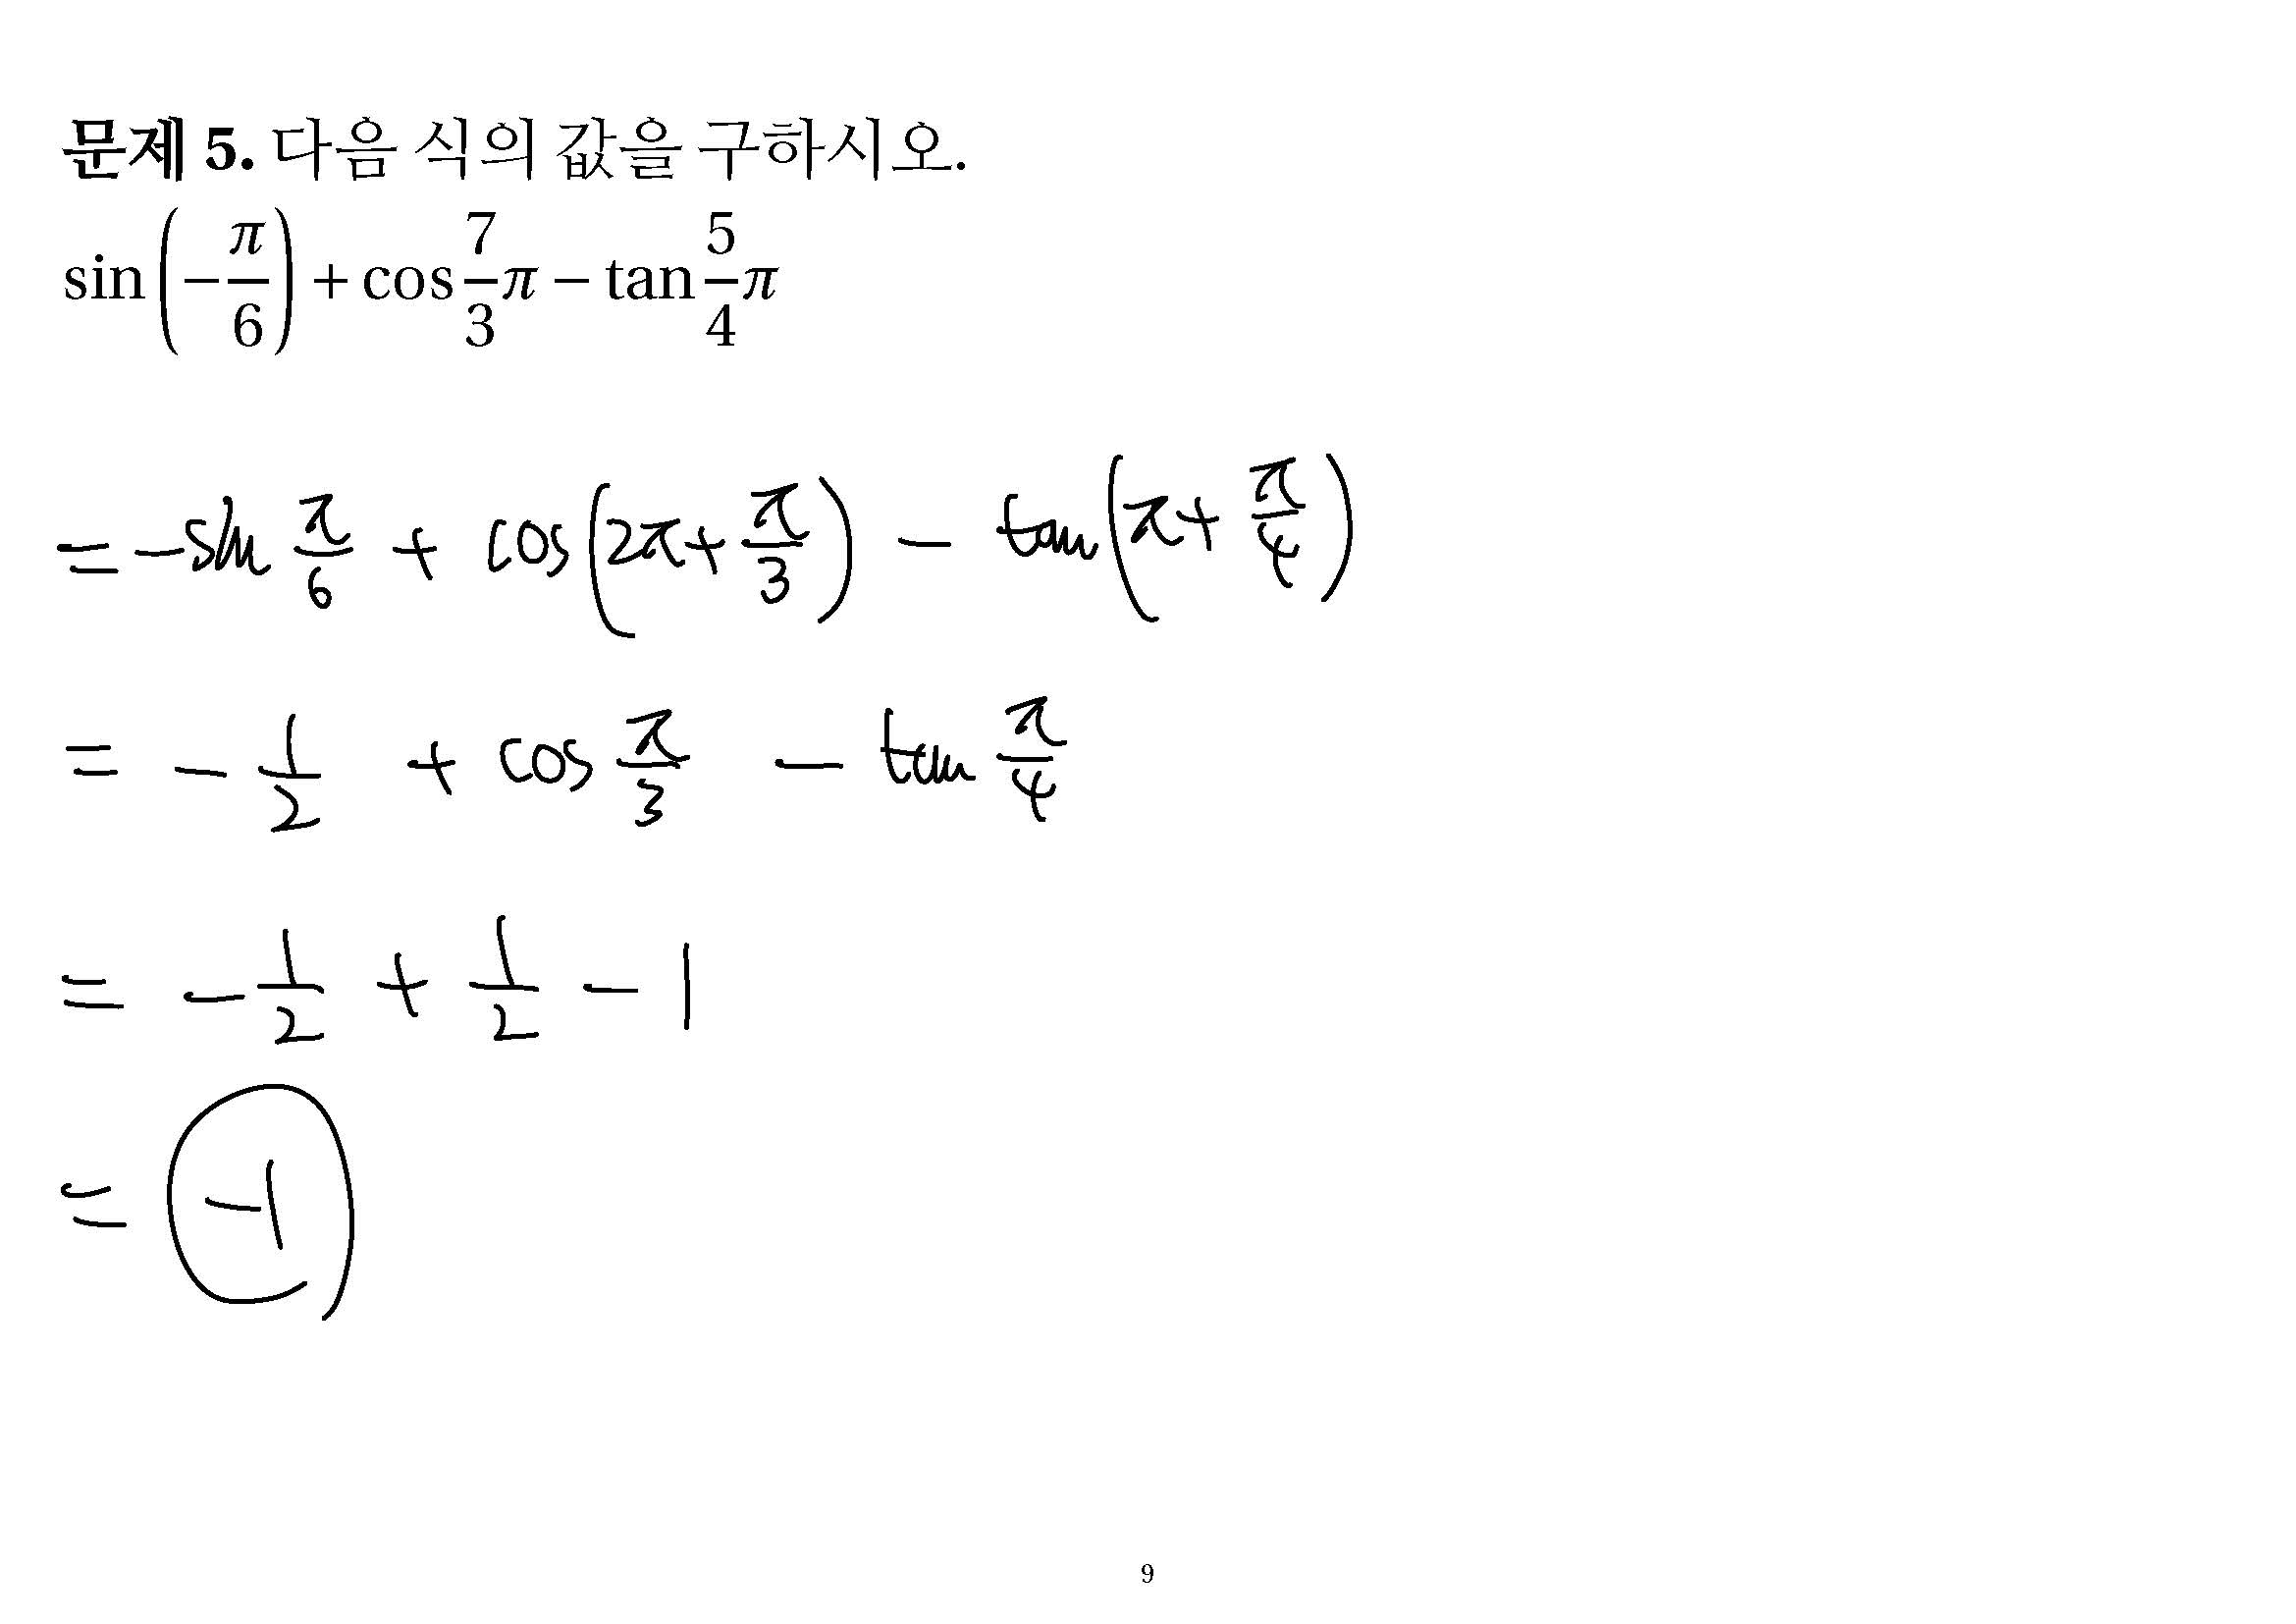 문제 5. 다음 식의 값을 구하시오.
sin(−π/6) + cos 7/3 π − tan 5/4 π
= −sin π/6 + cos(2π + π/3) − tan(π + π/4)
= − 1/2 + cos π/3 − tan π/4
= − 1/2 + 1/2 − 1
= −1
9